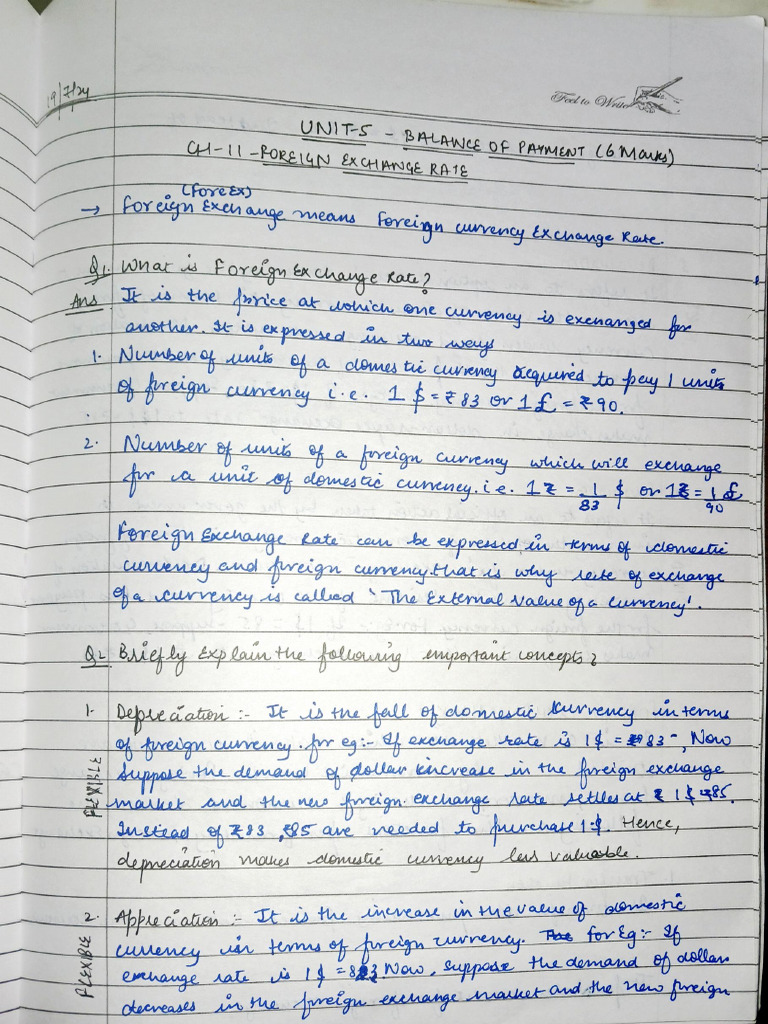 19/7/24
Feel to Write
UNIT-5 - BALANCE OF PAYMENT (6 Marks)
CH-11-FOREIGN EXCHANGE RATE
(ForeEx)
→ Foreign Exchange means Foreign currency Exchange Rate.
Q1. What is Foreign Exchange Rate?
Ans It is the price at which one currency is exchanged for
another. It is expressed in two ways
1. Number of units of a domestic currency required to pay 1 units
of foreign currency i.e. 1 $ = ₹83 or 1£ = ₹90.
2. Number of units of a foreign currency which will exchange
for a unit of domestic currency. i.e. 1₹ = 1/83 $ or 1₹ = 1/90 £
Foreign Exchange Rate can be expressed in terms of domestic
currency and foreign currency. that is why rate of exchange
of a currency is called 'The External Value of a currency'.
Q2 Briefly Explain the following important concepts?
1. Depreciation :- It is the fall of domestic currency in terms
of foreign currency. for eg:- If exchange rate is 1$ = ₹83, Now
Suppose the demand of dollar increase in the foreign exchange
FLEXIBLE
market and the new foreign exchange rate settles at 1$ = ₹85.
Instead of ₹83, ₹85 are needed to purchase 1$. Hence,
depreciation makes domestic currency less valuable.
2. Appreciation :- It is the increase in the value of domestic
FLEXIBLE
currency in terms of foreign currency. for Eg:- If
exchange rate is 1$ = 83. Now, suppose the demand of dollar
decreases in the foreign exchange market and the new foreign